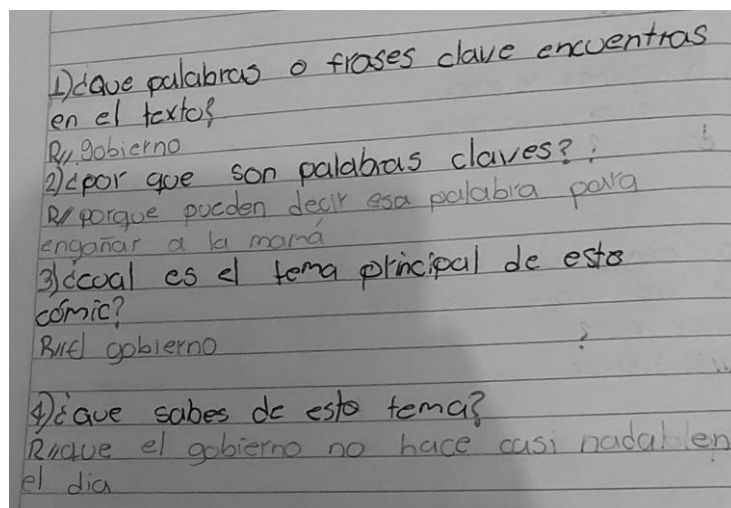 1)¿Que palabras o frases clave encuentras
en el texto?
R//.gobierno
2)¿por que son palabras claves?:
R// porque pueden decir esa palabra para
engañar a la mamá
3)¿cual es el tema principal de este
cómic?
R//El gobierno
4)¿que sabes de esto tema?
R//que el gobierno no hace casi nadal en
el dia